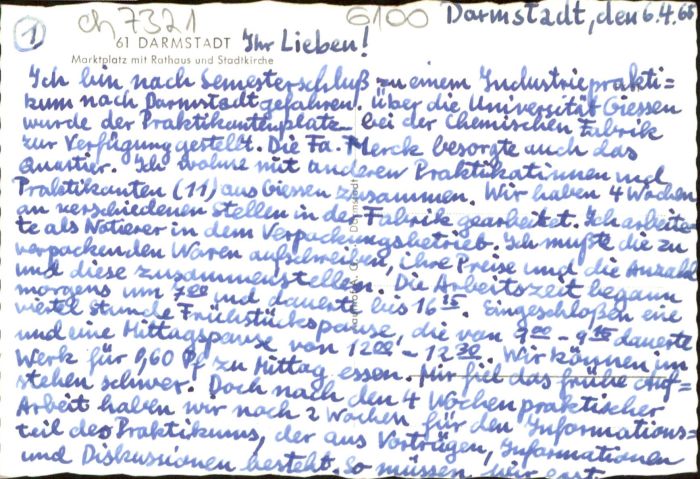 1 ch 7321 6100 Darmstadt, den 6.4.66
61 DARMSTADT Ihr Lieben!
Marktplatz mit Rathaus und Stadtkirche
Ich bin nach Semesterschluß zu einem Industrieprakti=
kum nach Darmstadt gefahren. Über die Universität Giessen
wurde der Praktikantenplatz bei der Chemischen Fabrik
zur Verfügung gestellt. Die Fa. Merck besorgte auch das
Quartier. Ich wohne mit anderen Praktikatinnen und
Praktikanten (11) aus Giessen zusammen. Wir haben 4 Wochen
an verschiedenen Stellen in der Fabrik gearbeitet. Ich arbeite
te als Notierer in dem Verpackungsbetrieb. Ich mußte die zu
verpackenden Waren aufschreiben, ihre Preise und die Anzahl
und diese zusammenstellen. Die Arbeitszeit begann
morgens um 7⁰⁰ und dauerte bis 16¹⁵. Eingeschloßen eine
viertel stunde Frühstückspause, die von 9⁰⁰ - 9¹⁵ dauerte
und eine Mittagspause von 12⁰⁰ - 12³⁰. Wir können im
Werk für 0,60 Pf zu Mittag essen. Mir fiel das frühe Auf=
stehen schwer. Doch nach den 4 Wochen praktischer
Arbeit haben wir noch 2 Wochen für den Informations=
teil des Praktikums, der aus Vorträgen, Informationen
und Diskussionen besteht. So müssen wir erst
Darmstadt